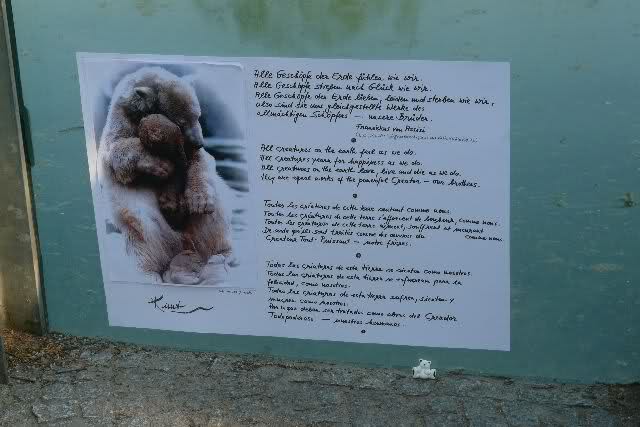 Alle Geschöpfe der Erde fühlen wie wir.
Alle Geschöpfe streben nach Glück wie wir.
Alle Geschöpfe der Erde lieben, leiden und sterben wie wir,
also sind sie uns gleichgestellte Werke des
allmächtigen Schöpfers — unsere Brüder.
Franziskus von Assisi
All creatures on the earth feel as we do.
All creatures yearn for happiness as we do.
All creatures on the earth love, live and die as we do.
They are equal works of the powerful Creator — our brothers.
Toutes les créatures de cette terre sentent comme nous.
Toutes les créatures de cette terre s'efforcent de bonheur, comme nous.
Toutes les créatures de cette terre aiment, souffrent et meurent
comme nous.
De sorte qu'elles sont traités comme des œuvres du
Créateur Tout-Puissant — notre frères.
Todas las criaturas de esta tierra se sienten como nosotros.
Todas las criaturas de esta tierra se esfuerzan para la
felicidad, como nosotros.
Todas las criaturas de esta tierra sufren, y
mueren como nosotros.
Por lo que deben ser tratados como obras del Creador
Todopoderoso — nuestros hermanos.
Knut